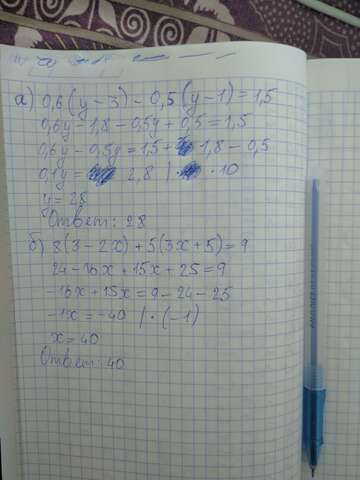 а) 0,6(y-3) - 0,5(y-1) = 1,5
0,6y - 1,8 - 0,5y + 0,5 = 1,5
0,6y - 0,5y = 1,5 + 1,8 - 0,5
0,1y = 2,8 | · 10
y = 28
Ответ: 28
б) 8(3 - 2x) + 5(3x + 5) = 9
24 - 16x + 15x + 25 = 9
-16x + 15x = 9 - 24 - 25
-1x = -40 | · (-1)
x = 40
Ответ: 40